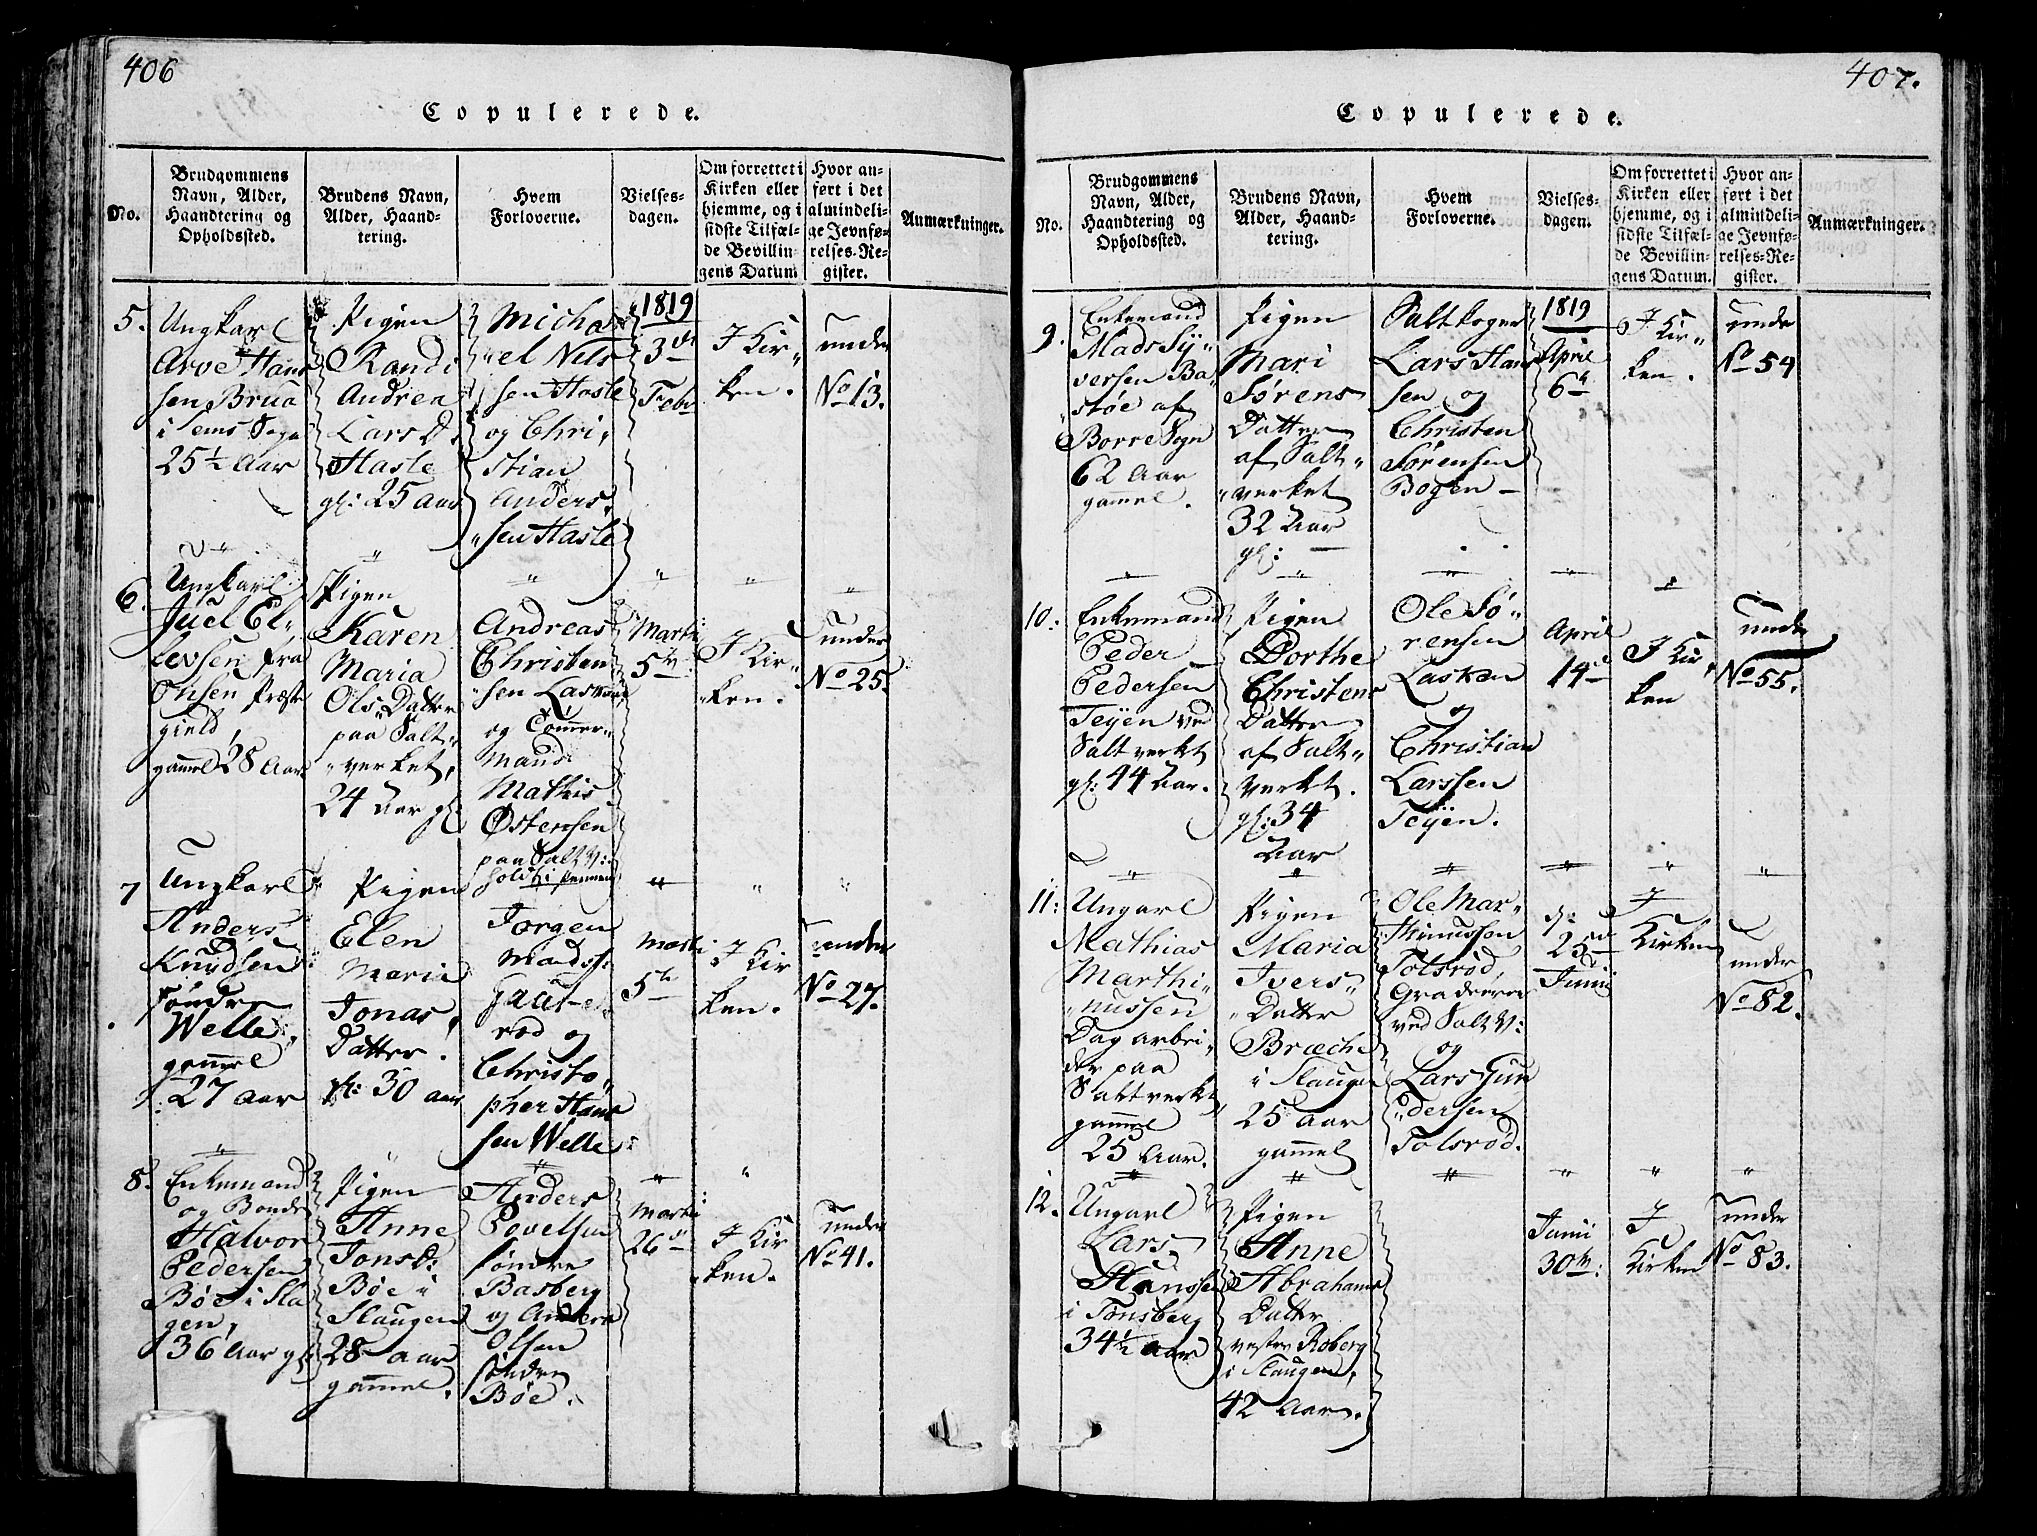 406
Copulerede.
No.
Brudgommens
Navn, Alder,
Haandtering og
Opholdssted.
Brudens Navn,
Alder, Haand-
tering.
Hvem
Forloverne.
Vielses-
dagen.
Om forrettet i
Kirken eller
hjemme, og i
sidste Tilfæl-
de Bevillin-
gens Datum
Hvor an-
ført i det
almindeli-
ge Jevnfø-
relses-Re-
gister.
Anmærkninger.
5.
Ungkarl
Arve Hans
sen Brua
i Sems Sogn
25½ Aar
Pigen
Randi
Andrea
Lars D.
Hasle
gl: 25 Aar
Micha
el Nils
sen Hasle
og Chri,
stian
Anders,
sen Hasle
1819
3de
Febr
I Kir-
ken.
under
No 13.
6.
Ungkarl
Juel El-
levsen fra
Præste
gield,
gammel 28 Aar
Pigen
Karen
Maria
Ols Datter
paa Salt-
verket,
24 Aar gl.
Andreas
Christen
sen Laskan
og Tømmer-
mand
Mathis
Østensen
paa Salt V:
Martii
5te
I Kir-
ken.
under
No 25.
7
Ungkarl
Anders
Knudsen
søndre
Welle,
gammel
27 Aar
Pigen
Elen
Maria
Jonas,
Datter.
gl: 30 aar
Jørgen
Madss:
rød og
Christo-
pher Hans
sen Welle
Martii
5te
I Kir
ken.
under
No 27.
8.
Enkemand
og Bonde
Halvor
Pedersen
Bøe i Sla
gen,
36 Aar gl
Pigen
Anne
Jonsd:
Bøe i
Slaugen
28 aar
gammel.
Anders
Povelsen
søndre
Basberg
og Anders
Olsen
søndre
Bøe.
Martii
26de
I Kir
ken.
under
No 41.
407.
Copulerede.
No.
Brudgommens
Navn, Alder,
Haandtering og
Opholdssted.
Brudens Navn,
Alder, Haand-
tering.
Hvem
Forloverne.
Vielses-
dagen.
Om forrettet i
Kirken eller
hjemme, og i
sidste Tilfæl-
de Bevillin-
gens Datum.
Hvor an-
ført i det
almindeli-
ge Jevnfø-
relses-Re-
gister.
Anmærkninger.
9.
Enkemand
Mads Sy-
versen Ba-
støe af
Borre Sogn
62 Aar
gammel.
Pigen
Mari
Sørens
Datter
af Salt-
verket
32 Aar
gl:
Saltkoger
Lars Hans
sen og
Christen
Sørensen
Bogen
1819
April
6te
I Kir-
ken.
under
No 54
10:
Enkemand
Peder
Pedersen
Teyen ved
Saltverket
gl: 44 Aar.
Pigen
Dorthe
Christens
Datter
af Salt-
verket.
gl: 34
Aar
Ole Sø-
rensen
Laskan
og
Christian
Larssen
Teyen.
April
14de
I Kir,
ken
under
No 55.
11:
Ungarl
Mathias
Marthi-
nussen
Dag arbei-
der paa
Saltverket
gammel
25 Aar.
Pigen
Maria
Ivers-
Datter
Bræche
i Slaugen
25 Aar
gammel
Ole Mar-
thinussen
Tolsrød,
Graderer
ved Salt V:
og
Lars Gun
dersen
Tolsrød.
d:
25de
Junii
I
Kirken
under
No 82.
12.
Ungarl
Lars
Hanssen
i Tønsberg
34½ aar
Pigen
Anne
Abrahams
Datter
vestre Roberg
i Slaugen,
42 Aar.
Junii
30te:
I
Kirken
under
No 83.